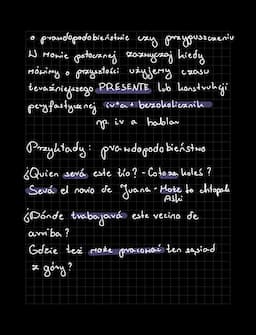 o prawdopodobieństwie czy przypuszczeniu
W mowie potocznej zazwyczaj kiedy
mówimy o przyszłości użyjemy czasu
teraźniejszego PRESENTE lub konstrukcji
peryfrastycznej ir+a+ bezokolicznik
np. ir a hablar
Przykłady: prawdopodobieństwo
¿Quien será este tío? - Co to za koleś?
Será el novio de Juana - Może to chłopak
Aśki
¿Dónde trabajará este vecino de
arriba?
Gdzie też może pracować ten sąsiad
z góry?